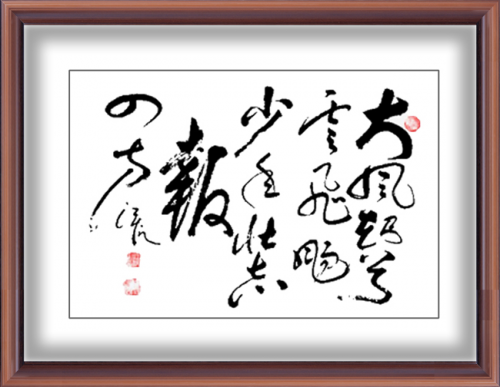 大風起兮
雲飛
少年壯志
報
四方